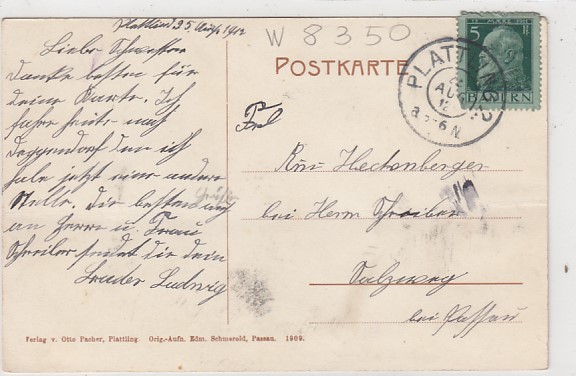 Plattling 25. Aug. 1912
W 8350
Liebe Schwester
Danke besten für
deine Karte. Ich
fahre heute nach
Deggendorf den ich
habe jetzt eine andere
Stelle. Die besten
Grüße
an Herrn u. Frau
Schreiber sendet dir dein
Bruder Ludwig
POSTKARTE
5
BAYERN
PLATTLING 2
AUG
12
6 N
Frl
Hectenberger
bei Herrn Schreiber
Salzweg
bei Passau
Verlag v. Otto Pacher, Plattling. Orig.-Aufn. Edm. Schmerold, Passau. 1909.